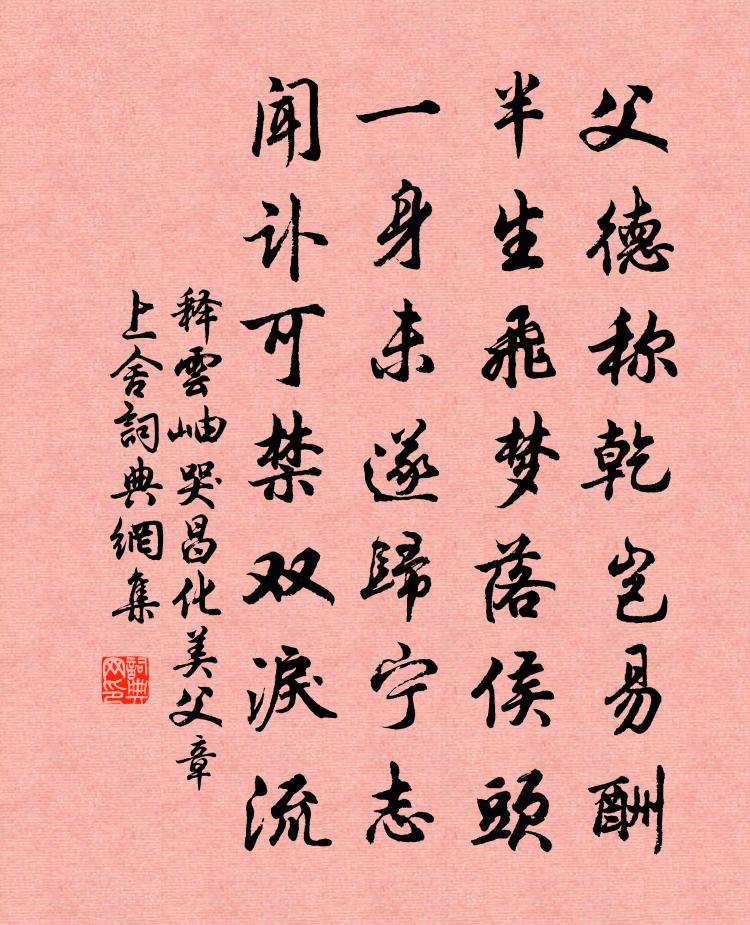 父德称乾岂易酬
半生飛梦落侯頭
一身未遂歸宁志
闻讣可禁双淚流
释雲岫哭昌化美父章
上舍詞典網集
詞典网印